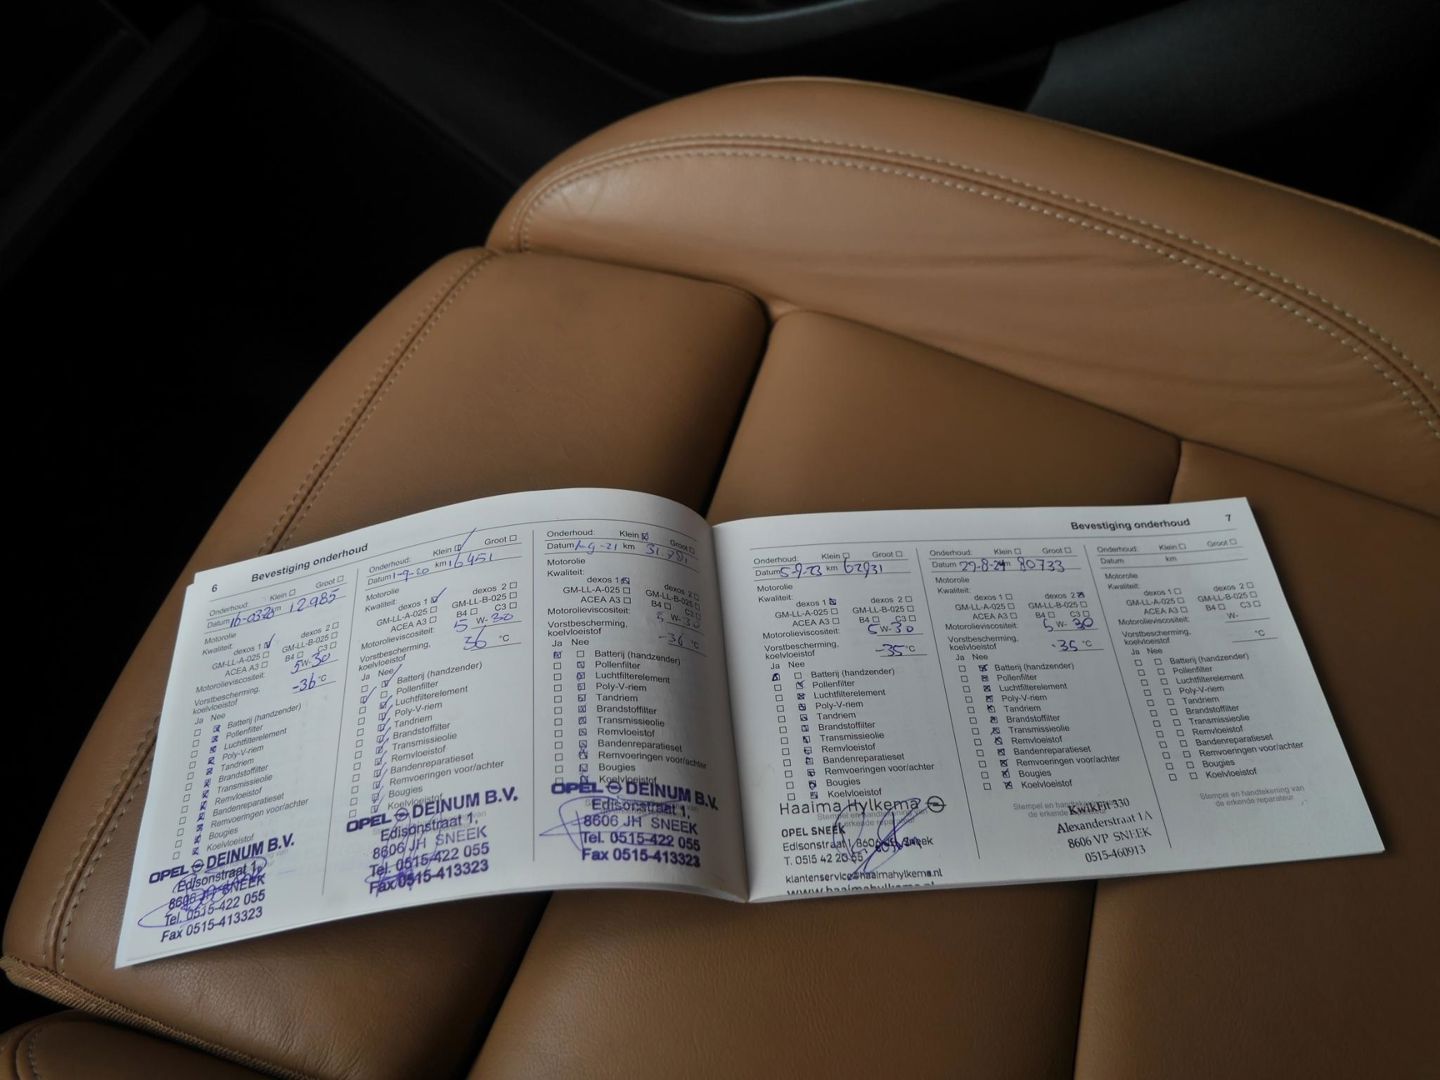 6
Bevestiging onderhoud
Onderhoud: Klein Groot
Datum 16-03-20 km 12985
Motorolie
Kwaliteit:
dexos 1 dexos 2
GM-LL-A-025 GM-LL-B-025
ACEA A3 B4 C3
Motorolieviscositeit: 5W-30
Vorstbescherming, koelvloeistof -36 °C
Ja Nee
Batterij (handzender)
Pollenfilter
Luchtfilterelement
Poly-V-riem
Tandriem
Brandstoffilter
Transmissieolie
Remvloeistof
Bandenreparatieset
Remvoeringen voor/achter
Bougies
Koelvloeistof
OPEL DEINUM B.V.
Edisonstraat 1,
8606 JH SNEEK
Tel. 0515-422 055
Fax 0515-413323
Onderhoud: Klein Groot
Datum 1-9-20 km 16451
Motorolie
Kwaliteit:
dexos 1 dexos 2
GM-LL-A-025 GM-LL-B-025
ACEA A3 B4 C3
Motorolieviscositeit: 5 W- 30
Vorstbescherming, koelvloeistof 36 °C
Ja Nee
Batterij (handzender)
Pollenfilter
Luchtfilterelement
Poly-V-riem
Tandriem
Brandstoffilter
Transmissieolie
Remvloeistof
Bandenreparatieset
Remvoeringen voor/achter
Bougies
Koelvloeistof
OPEL DEINUM B.V.
Edisonstraat 1,
8606 JH SNEEK
Tel. 0515-422 055
Fax 0515-413323
Onderhoud: Klein Groot
Datum km
Motorolie
Kwaliteit:
dexos 1 dexos 2
GM-LL-A-025 GM-LL-B-025
ACEA A3 B4 C3
Motorolieviscositeit: 5 W- 30
Vorstbescherming, koelvloeistof -36 °C
Ja Nee
Batterij (handzender)
Pollenfilter
Luchtfilterelement
Poly-V-riem
Tandriem
Brandstoffilter
Transmissieolie
Remvloeistof
Bandenreparatieset
Remvoeringen voor/achter
Bougies
Koelvloeistof
OPEL DEINUM B.V.
Edisonstraat 1,
8606 JH SNEEK
Tel. 0515-422 055
Fax 0515-413323
Bevestiging onderhoud
7
Onderhoud: Klein Groot
Datum 5-9-23 km 62931
Motorolie
Kwaliteit:
dexos 1 dexos 2
GM-LL-A-025 GM-LL-B-025
ACEA A3 B4 C3
Motorolieviscositeit: 5 W- 30
Vorstbescherming, koelvloeistof -35 °C
Ja Nee
Batterij (handzender)
Pollenfilter
Luchtfilterelement
Poly-V-riem
Tandriem
Brandstoffilter
Transmissieolie
Remvloeistof
Bandenreparatieset
Remvoeringen voor/achter
Bougies
Koelvloeistof
Haaima Hylkema
OPEL SNEEK
Edisonstraat 1 8606 Sneek
T. 0515 42 20 55
klantenservice@haaimahylkema.nl
www.haaimahylkema.nl
Onderhoud: Klein Groot
Datum 29-8-24 km 80733
Motorolie
Kwaliteit:
dexos 1 dexos 2
GM-LL-A-025 GM-LL-B-025
ACEA A3 B4 C3
Motorolieviscositeit: 5 W- 30
Vorstbescherming, koelvloeistof -35 °C
Ja Nee
Batterij (handzender)
Pollenfilter
Luchtfilterelement
Poly-V-riem
Tandriem
Brandstoffilter
Transmissieolie
Remvloeistof
Bandenreparatieset
Remvoeringen voor/achter
Bougies
Koelvloeistof
KwikFit 330
Alexanderstraat 1A
8606 VP SNEEK
0515-460913
Onderhoud: Klein Groot
Datum km
Motorolie
Kwaliteit:
dexos 1 dexos 2
GM-LL-A-025 GM-LL-B-025
ACEA A3 B4 C3
Motorolieviscositeit: W-
Vorstbescherming, koelvloeistof °C
Ja Nee
Batterij (handzender)
Pollenfilter
Luchtfilterelement
Poly-V-riem
Tandriem
Brandstoffilter
Transmissieolie
Remvloeistof
Bandenreparatieset
Remvoeringen voor/achter
Bougies
Koelvloeistof
Stempel en handtekening van
de erkende reparateur